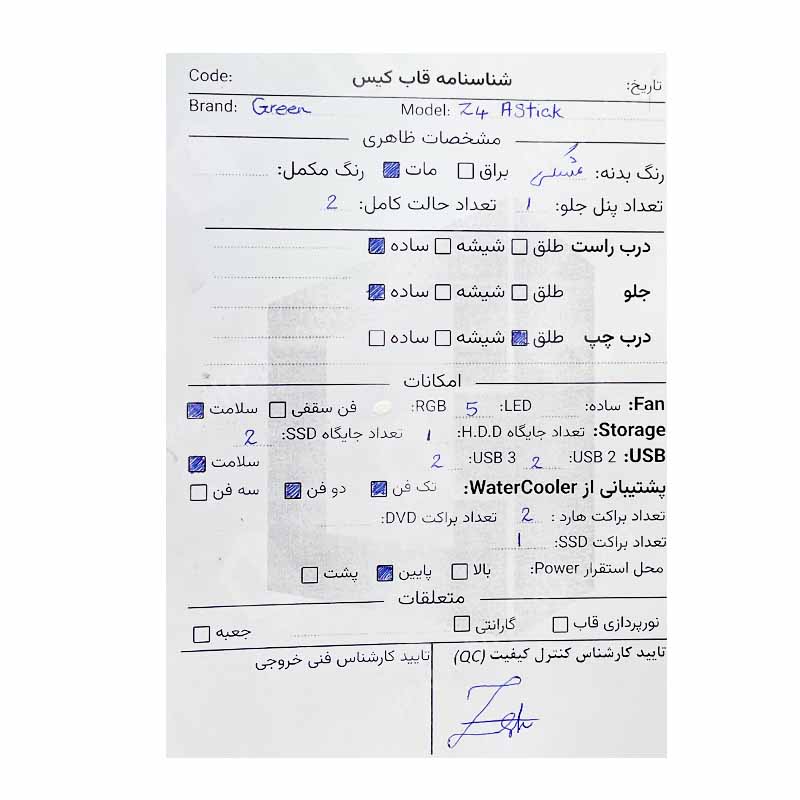 تاریخ: شناسنامه قاب کیس Code:
Brand: Green Model: Z4 AStick
مشخصات ظاهری
رنگ بدنه: مشکی براق مات رنگ مکمل:
تعداد پنل جلو: 1 تعداد حالت کامل: 2
درب راست طلق شیشه ساده
جلو طلق شیشه ساده
درب چپ طلق شیشه ساده
امکانات
Fan: ساده: LED: 5 RGB: فن سقفی سلامت
Storage: تعداد جایگاه H.D.D: 1 تعداد جایگاه SSD: 2
USB: USB 2: 2 USB 3: 2 سلامت
پشتیبانی از WaterCooler: تک فن دو فن سه فن
تعداد براکت هارد : 2 تعداد براکت DVD:
تعداد براکت SSD: 1
محل استقرار Power: بالا پایین پشت
متعلقات
نورپردازی قاب گارانتی جعبه
تایید کارشناس کنترل کیفیت (QC) تایید کارشناس فنی خروجی